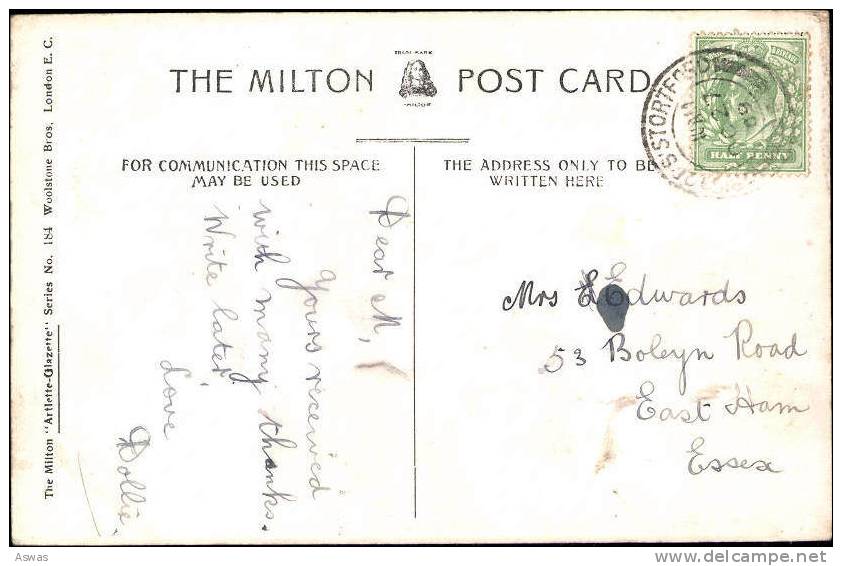 THE MILTON POST CARD
TRADE MARK
MILTON
FOR COMMUNICATION THIS SPACE
MAY BE USED
THE ADDRESS ONLY TO BE
WRITTEN HERE
The Milton "Artlette-Glazette" Series No. 184 Woolstone Bros, London E. C.
Dear M,
Yours received
with many thanks.
Write later.
Love
Dollie.
Mrs Edwards
53 Boleyn Road
East Ham
Essex
HALF PENNY
STORTFORD
Aswas
delcampe.net